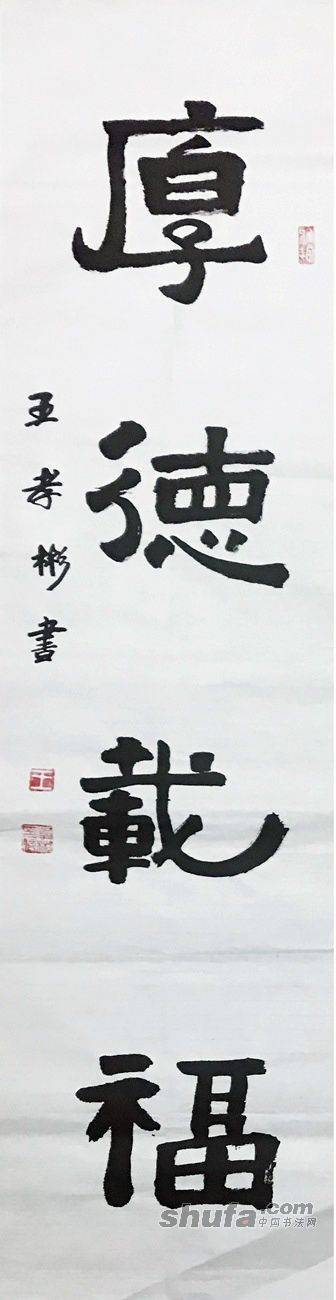 厚德載福
王孝彬書
shufa.com
中国书法网